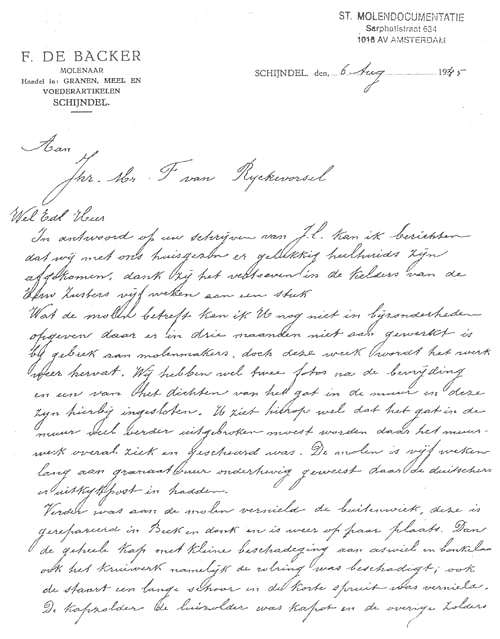 ST. MOLENDOCUMENTATIE
Sarphatistraat 634
1018 AV AMSTERDAM
F. DE BACKER
MOLENAAR
Handel in: GRANEN, MEEL EN
VOEDERARTIKELEN
SCHIJNDEL.
SCHIJNDEL, den, 6 Aug 1945
Aan
Jhr. Mr. F van Ryckevorsel
Wel Edl Heer
In antwoord op uw schrijven van J.l. kan ik berichten
dat wij met ons huisgezin er gelukkig heelhuids zijn
afgekomen, dank zij het vertoeven in de kelders van de
Eerw Zusters vijf weken aan een stuk
Wat de molen betreft kan ik U nog niet in bijzonderheden
opgeven daar er in drie maanden niet aan gewerkt is
bij gebrek aan molenmakers, doch deze week wordt het werk
weer hervat. Wij hebben wel twee fotos na de bevrijding
en een van het dichten van het gat in de muur en deze
zyn hierbij ingesloten. U ziet hierop wel dat het gat in de
muur veel verder uitgebroken moest worden daar het muur-
werk overal ziek en gescheurd was. De molen is vijf weken
lang aan granaatvuur onderhevig geweest daar de duitschers
er uitkykpost in hadden.
Verder was aan de molen vernield de buitenwiek, deze is
gerepareerd in Beek en donk en is weer op haar plaats. Dan
de geheele kap met kleine beschadeging aan aswiel en bonkelaar
ook het kruiwerk namelijk de rolring was beschadigt; ook
de staart een lange schoor in de korte spruit was vernield.
De kapzolder de luizolder was kapot en de overige zolders